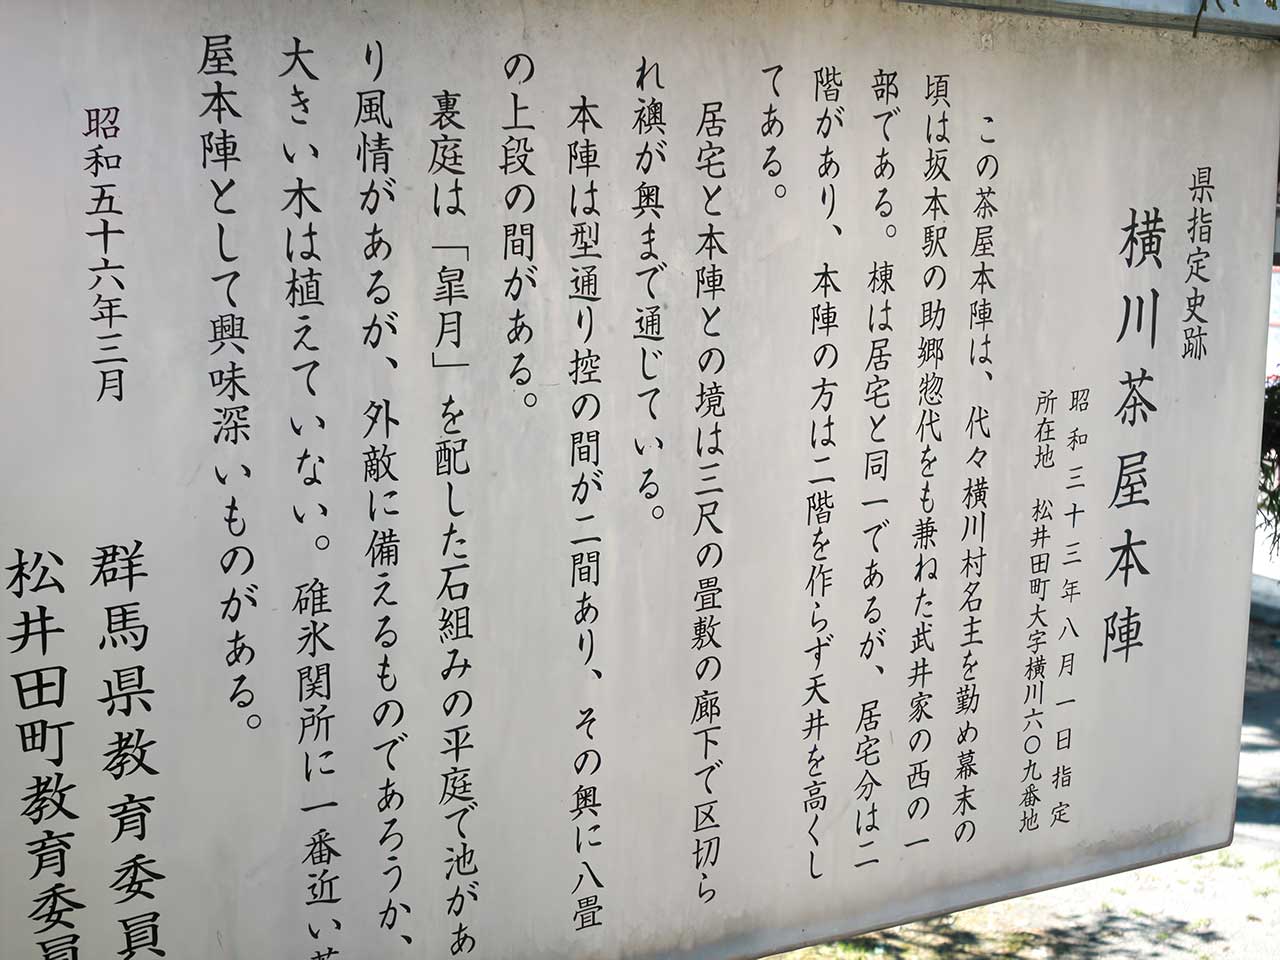 県指定史跡
横川茶屋本陣
昭和三十三年八月一日指定
所在地 松井田町大字横川六〇九番地
この茶屋本陣は、代々横川村名主を勤め幕末の
頃は坂本駅の助郷惣代をも兼ねた武井家の西の一
部である。棟は居宅と同一であるが、居宅分は二
階があり、本陣の方は二階を作らず天井を高くし
てある。
居宅と本陣との境は三尺の畳敷の廊下で区切ら
れ襖が奥まで通じている。
本陣は型通り控の間が二間あり、その奥に八畳
の上段の間がある。
裏庭は「皐月」を配した石組みの平庭で池があ
り風情があるが、外敵に備えるものであろうか、
大きい木は植えていない。碓氷関所に一番近い茶
屋本陣として興味深いものがある。
昭和五十六年三月
群馬県教育委員
松井田町教育委員